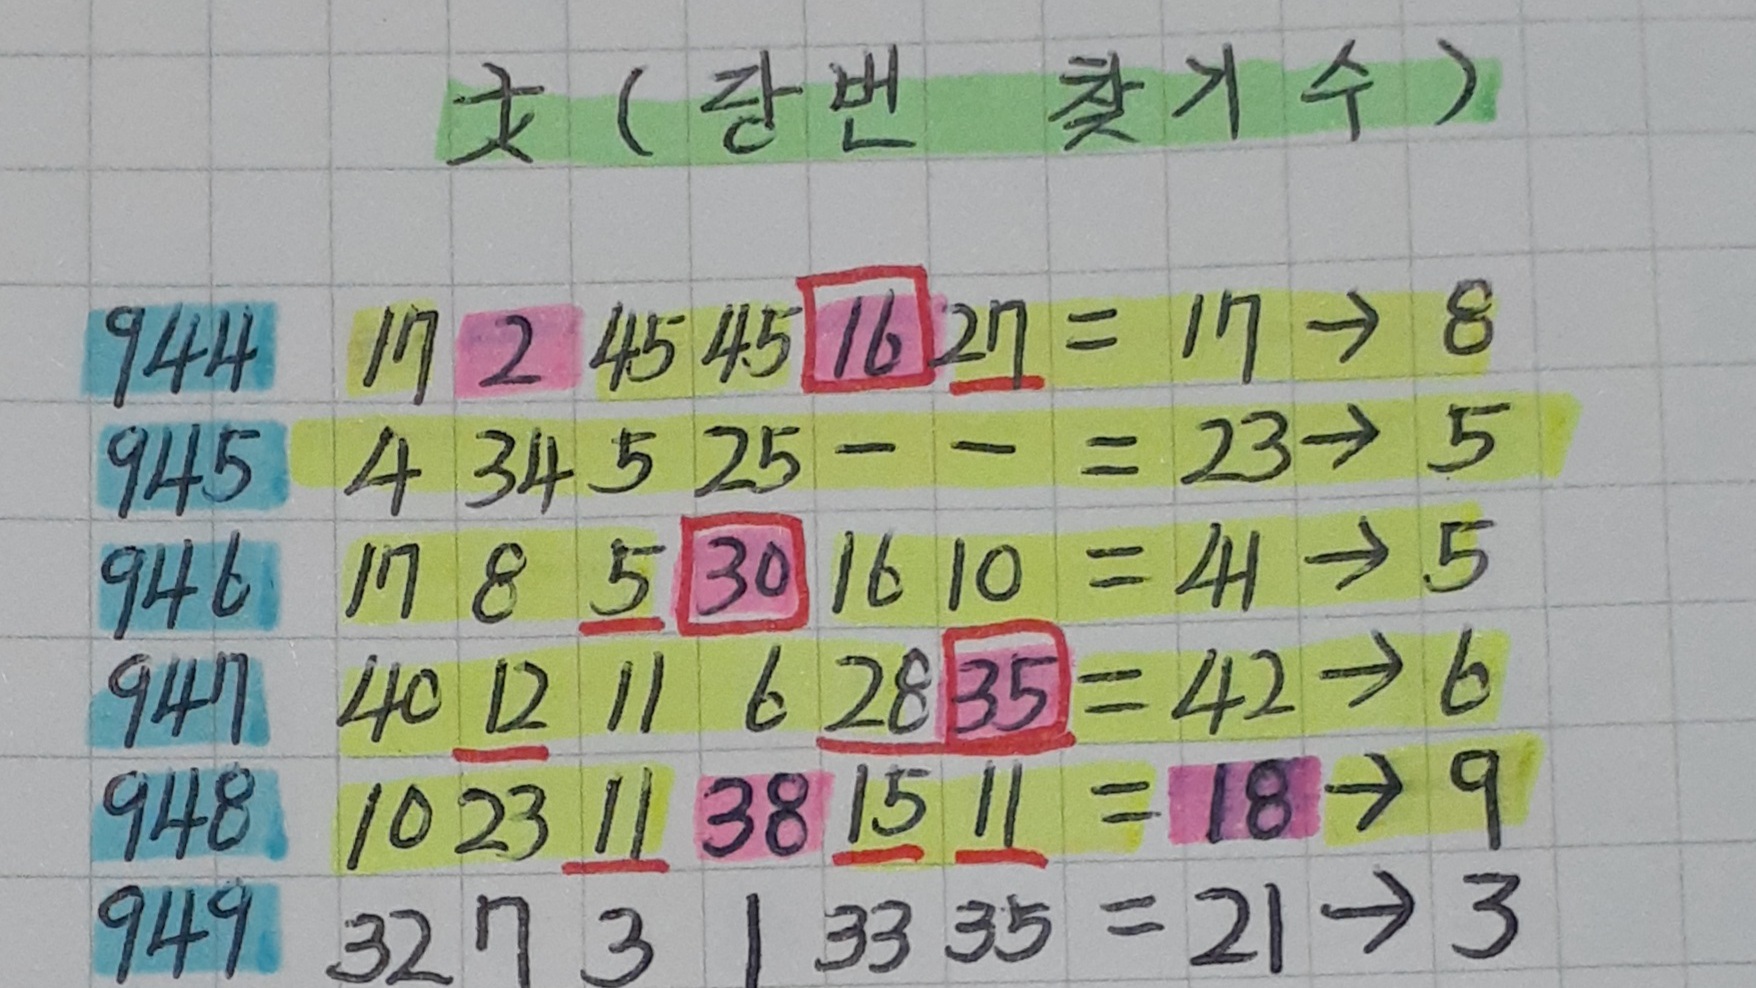 文(당번 찾기수)
944 17 2 45 45 16 27 = 17 → 8
945 4 34 5 25 - - = 23 → 5
946 17 8 5 30 16 10 = 41 → 5
947 40 12 11 6 28 35 = 42 → 6
948 10 23 11 38 15 11 = 18 → 9
949 32 7 3 1 33 35 = 21 → 3